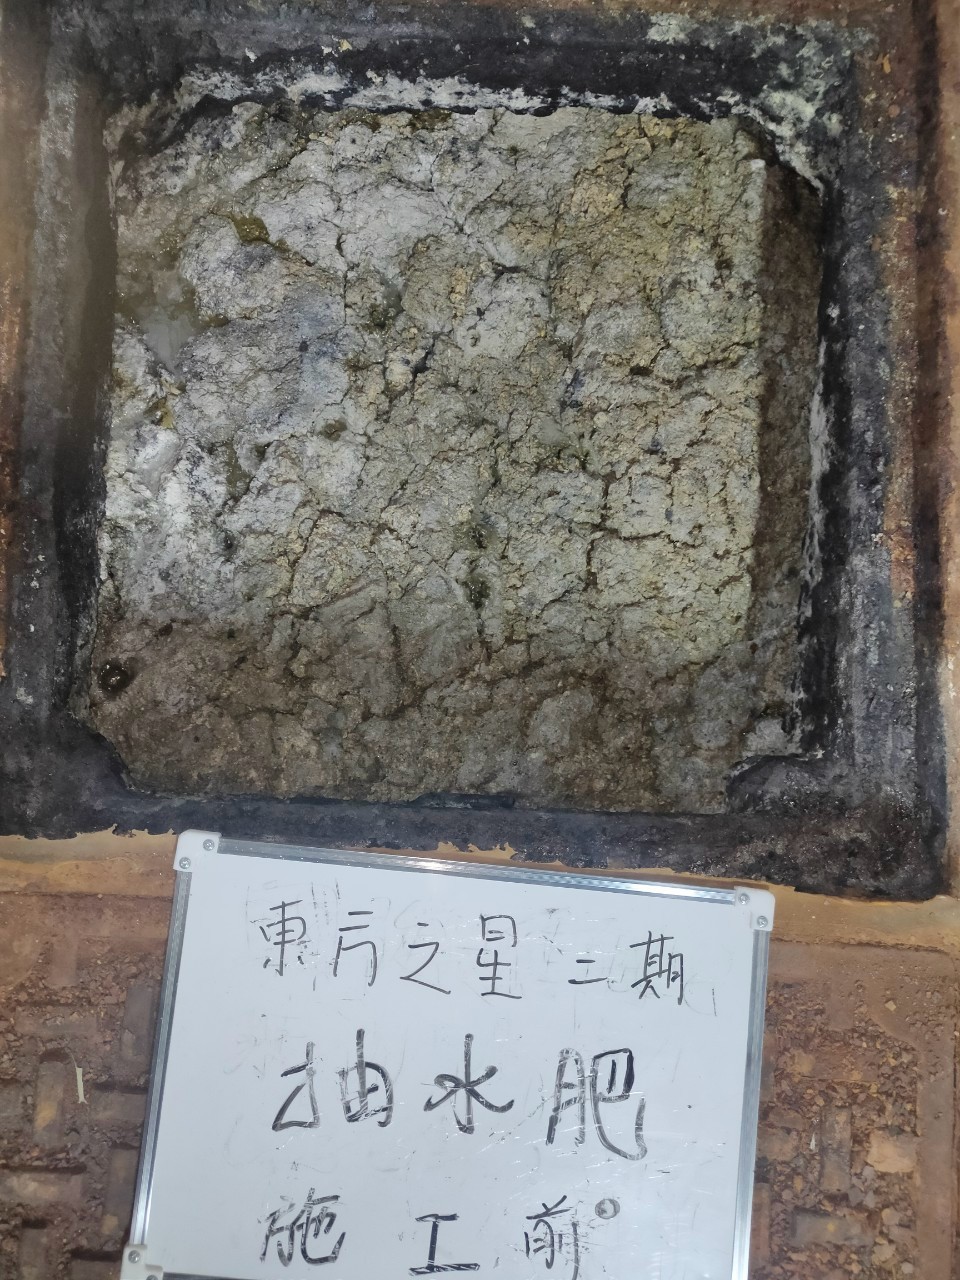 東方之星二期
抽水肥
施工前